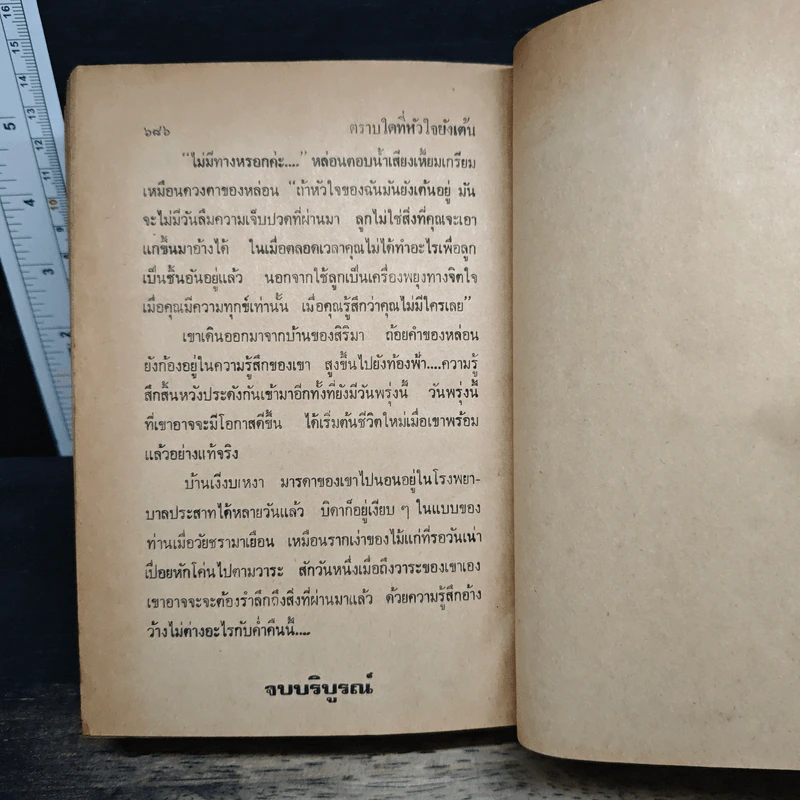 16
15
14
13
12
11
10
9
8
7
6
5
5
4
3
2
๖๘๖ ตราบใดที่หัวใจยังเต้น
"ไม่มีทางหรอกค่ะ...." หล่อนตอบน้ำเสียงเหี้ยมเกรียม
เหมือนดวงตาของหล่อน "ถ้าหัวใจของฉันมันยังเต้นอยู่ มัน
จะไม่มีวันลืมความเจ็บปวดที่ผ่านมา ลูกไม่ใช่สิ่งที่คุณจะเอา
แก่ขึ้นมาอ้างได้ ในเมื่อตลอดเวลาคุณไม่ได้ทำอะไรเพื่อลูก
เป็นชิ้นอันอยู่แล้ว นอกจากใช้ลูกเป็นเครื่องพยุงทางจิตใจ
เมื่อคุณมีความทุกข์เท่านั้น เมื่อคุณรู้สึกว่าคุณไม่มีใครเลย"
เขาเดินออกมาจากบ้านของสิริมา ถ้อยคำของหล่อน
ยังก้องอยู่ในความรู้สึกของเขา สูงขึ้นไปยังท้องฟ้า....ความรู้
สึกสิ้นหวังประดังกันเข้ามาอีกทั้งที่ยังมีวันพรุ่งนี้ วันพรุ่งนี้
ที่เขาอาจจะมีโอกาสดีขึ้น ได้เริ่มต้นชีวิตใหม่เมื่อเขาพร้อม
แล้วอย่างแท้จริง
บ้านเงียบเหงา มารดาของเขาไปนอนอยู่ในโรงพยา-
บาลประสาทได้หลายวันแล้ว บิดาก็อยู่เงียบ ๆ ในแบบของ
ท่านเมื่อวัยชรามาเยือน เหมือนรากเง่าของไม้แก่ที่รอวันเน่า
เปื่อยหักโค่นไปตามวาระ สักวันหนึ่งเมื่อถึงวาระของเขาเอง
เขาอาจจะจะต้องรำลึกถึงสิ่งที่ผ่านมาแล้ว ด้วยความรู้สึกอ้าง
ว้างไม่ต่างอะไรกับค่ำคืนนี้....
จบบริบูรณ์